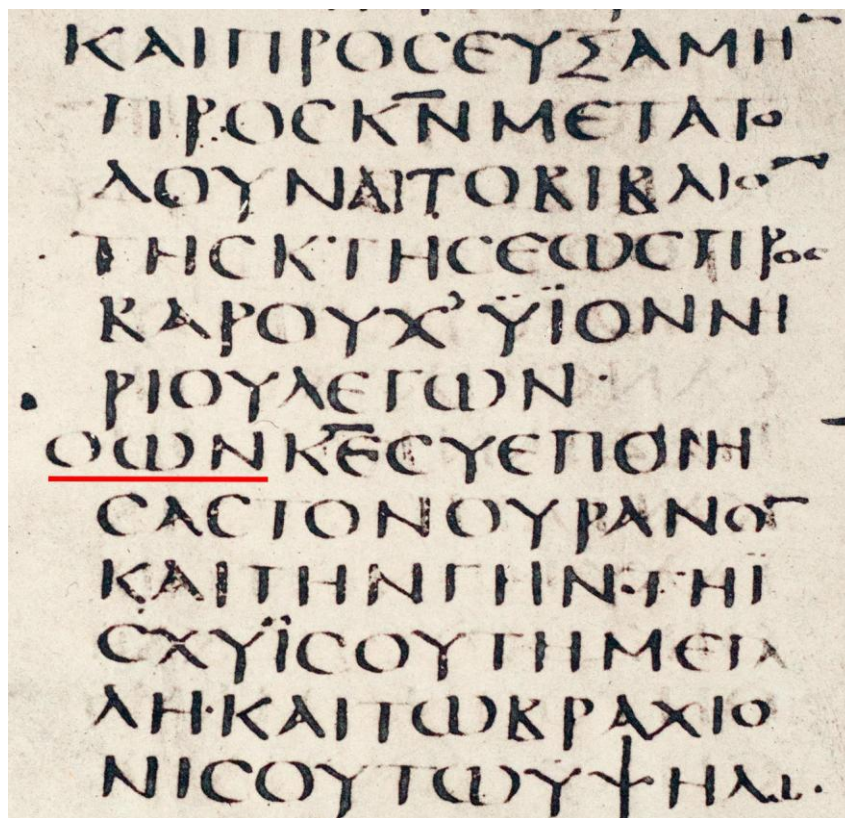 ΚΑΙΠΡΟϹΕΥΞΑΜΗ̅
ΠΡΟϹΚ̅Ν̅ΜΕΤΑΤΟ
ΔΟΥΝΑΙΤΟΒΙΒΛΙΟ̅
ΤΗϹΚΤΗϹΕΩϹΠΡΟϹ
ΒΑΡΟΥΧ’ΫΪΟΝΝΗ
ΡΙΟΥΛΕΓΩΝ·
ΟΩΝΚ̅Ε̅ϹΥΕΠΟΙΗ
ϹΑϹΤΟΝΟΥΡΑΝΟ̅
ΚΑΙΤΗΝΓΗΝ·ΤΗΪ
ϹΧΥΪϹΟΥΤΗΜΕΓΑ
ΛΗ·ΚΑΙΤΩΒΡΑΧΙΟ
ΝΙϹΟΥΤΩΥΨΗΛΩ·